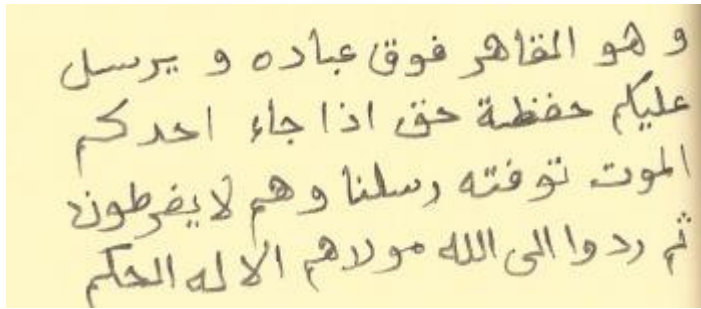 و هو القاهر فوق عباده و يرسل
عليكم حفظة حتى اذا جاء احدكم
الموت توفته رسلنا و هم لا يفرطون
ثم ردوا الى الله مولاهم الا له الحكم